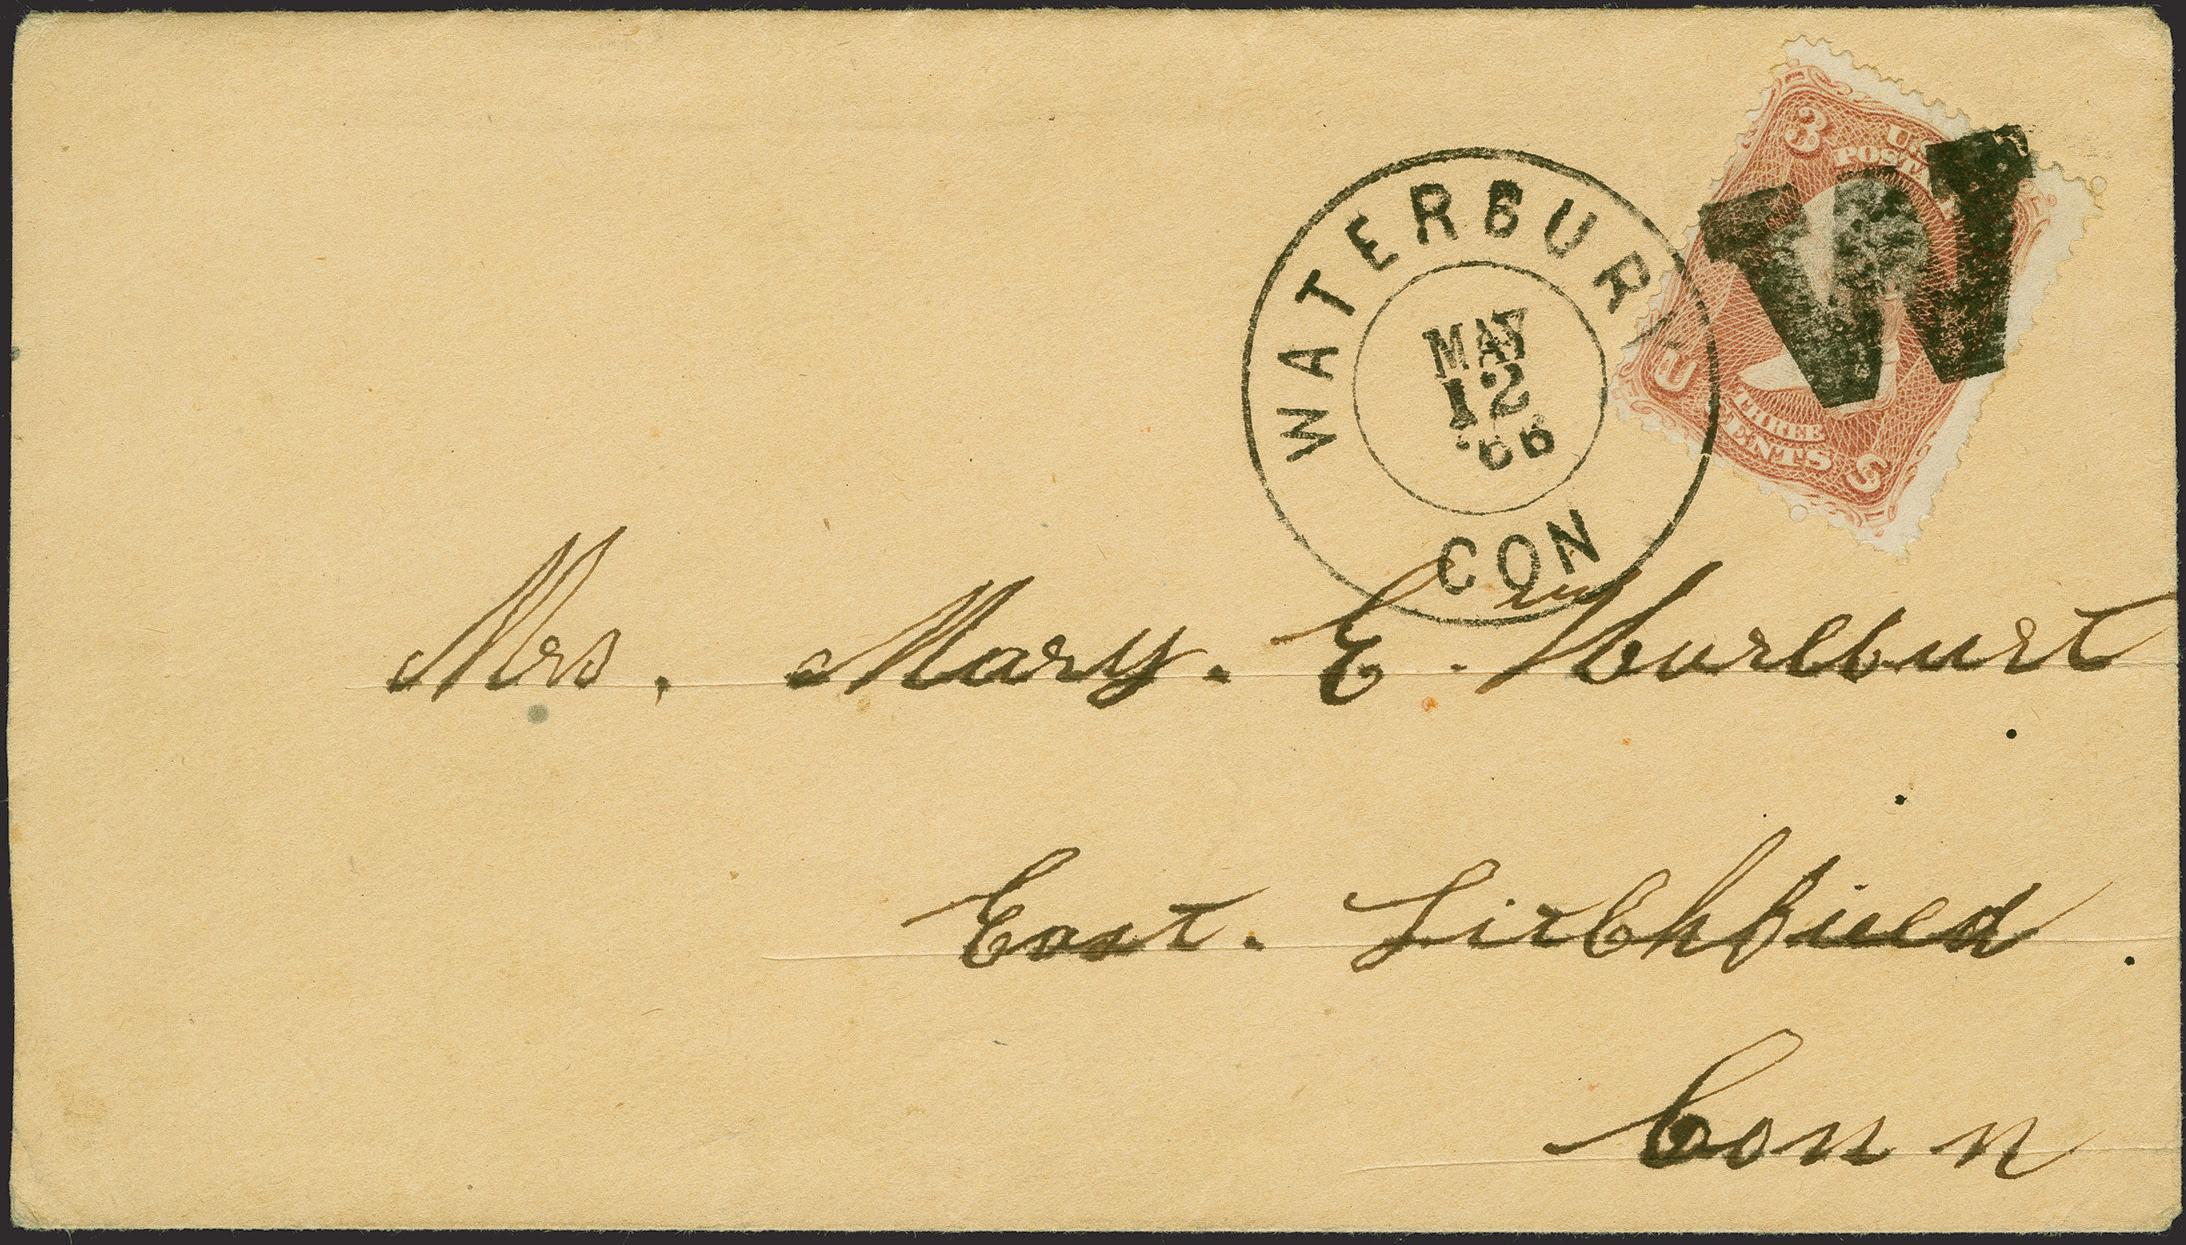 3 U.S. POSTA
U THREE CENTS S
WATERBURY
MAY
12
'66
CON
W
Mrs. Mary. E. Hurlburt
East. Litchfield.
Conn